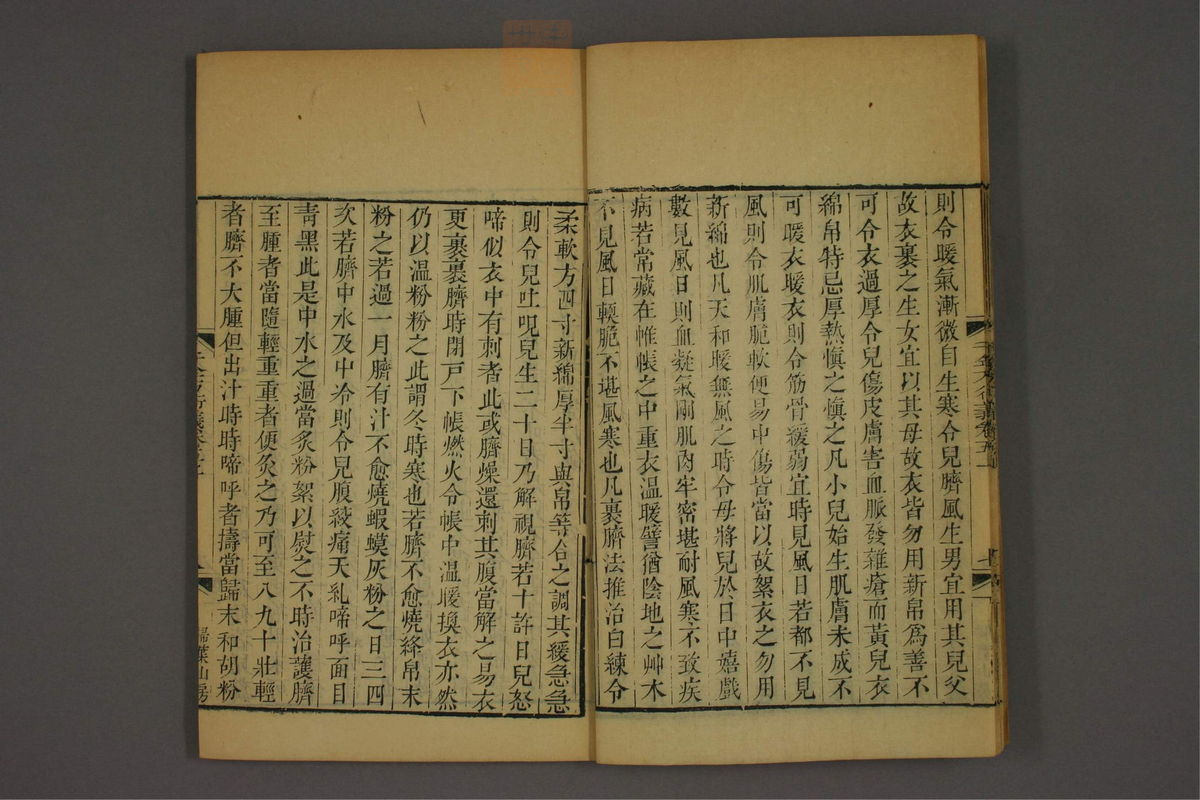 則令暖氣漸微自生寒令兒臍風生男宜用其兒父
故衣裹之生女宜以其母故衣皆勿用新帛爲善不
可令衣過厚令兒傷皮膚害血脈發雜瘡而黃兒衣
綿帛特忌厚熱愼之愼之凡小兒始生肌膚未成不
可暖衣暖衣則令筋骨緩弱宜時見風日若都不見
風則令肌膚脆軟便易中傷皆當以故絮衣之勿用
新綿也凡天和暖無風之時令母將兒於日中嬉戲
數見風日則血凝氣剛肌肉牢密堪耐風寒不致疾
病若常藏在帷帳之中重衣溫暖譬猶陰地之艸木
不見風日輭脆不堪風寒也凡裹臍法推治白練令
柔軟方四寸新綿厚半寸與帛等合之調其緩急急
則令兒吐哯兒生二十日乃解視臍若十許日兒怒
啼似衣中有刺者此或臍燥還刺其腹當解之易衣
更裹裹臍時閉戸下帳燃火令帳中溫暖換衣亦然
仍以溫粉粉之此謂冬時寒也若臍不愈燒絳帛末
粉之若過一月臍有汁不愈燒蝦蟆灰粉之日三四
次若臍中水及中冷則令兒腹絞痛天糺啼呼面目
靑黑此是中水之過當炙粉絮以熨之不時治護臍
至腫者當隨輕重重者便灸之乃可至八九十壯輕
者臍不大腫但出汁時時啼呼者擣當歸末和胡粉
千金方衍義卷五
掃葉山房